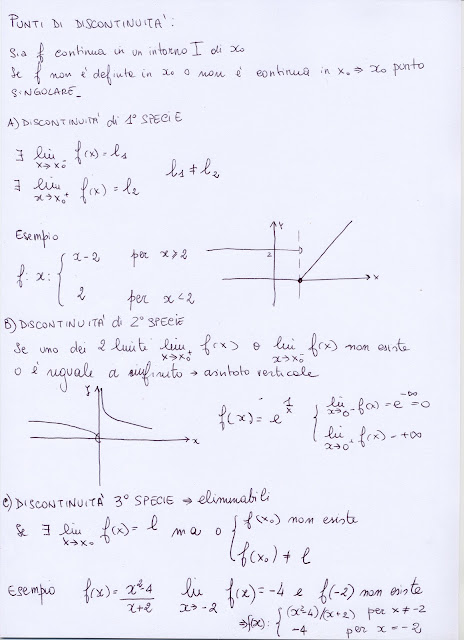 PUNTI DI DISCONTINUITA':
Sia f continua in un intorno I di x₀
Se f non è definita in x₀ o non è continua in x₀ ⇒ x₀ punto
SINGOLARE_
A) DISCONTINUITA' di 1° SPECIE
∃ lim x→x₀⁻ f(x) = l₁
l₁ ≠ l₂
∃ lim x→x₀⁺ f(x) = l₂
Esempio
f: x: { x-2 per x⩾2
2 per x<2
y
2
x
B) DISCONTINUITA' di 2° SPECIE
Se uno dei 2 limiti lim x→x₀⁺ f(x) o lim x→x₀⁻ f(x) non esiste
o è uguale a infinito → asintoto verticale
y
x
f(x) = e^(1/x) { lim x→0⁻ f(x) = e^(-∞) = 0
lim x→0⁺ f(x) = +∞
C) DISCONTINUITA' 3° SPECIE → eliminabili
Se ∃ lim x→x₀ f(x) = l ma o { f(x₀) non esiste
f(x₀) ≠ l
Esempio f(x) = (x²-4)/(x+2) lim x→-2 f(x) = -4 e f(-2) non esiste
⇒ f(x): { (x²-4)/(x+2) per x ≠ -2
-4 per x = -2